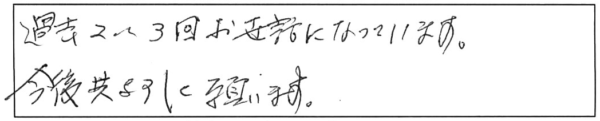 過去2〜3回お世話になっています。
今後共よろしく願います。